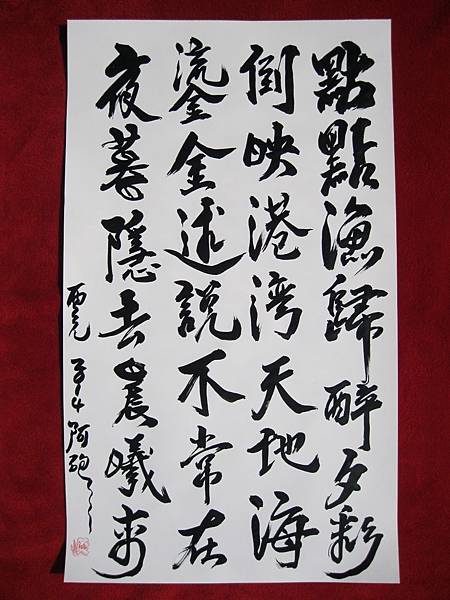 點點漁歸醉夕彩
倒映港湾天地海
鎏金述說不常在
夜暮隱去晨曦來
西元2014阿砲